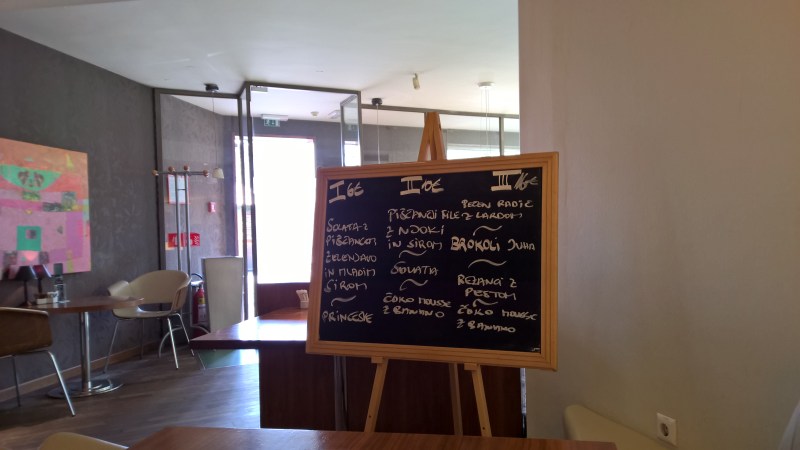 I 6€
SOLATA Z
PIŠČANCEM
ZELENJAVO
IN MLADIM
SIROM
PRINCESKE
II 10€
PIŠČANČJI FILE
Z NJOKI
IN SIROM
SOLATA
ČOKO MOUSSE
Z BANANO
III 16€
PEČEN RADIČ
Z LARDOM
BROKOLI JUHA
REZANCI Z
PESTOM
ČOKO MOUSSE
Z BANANO